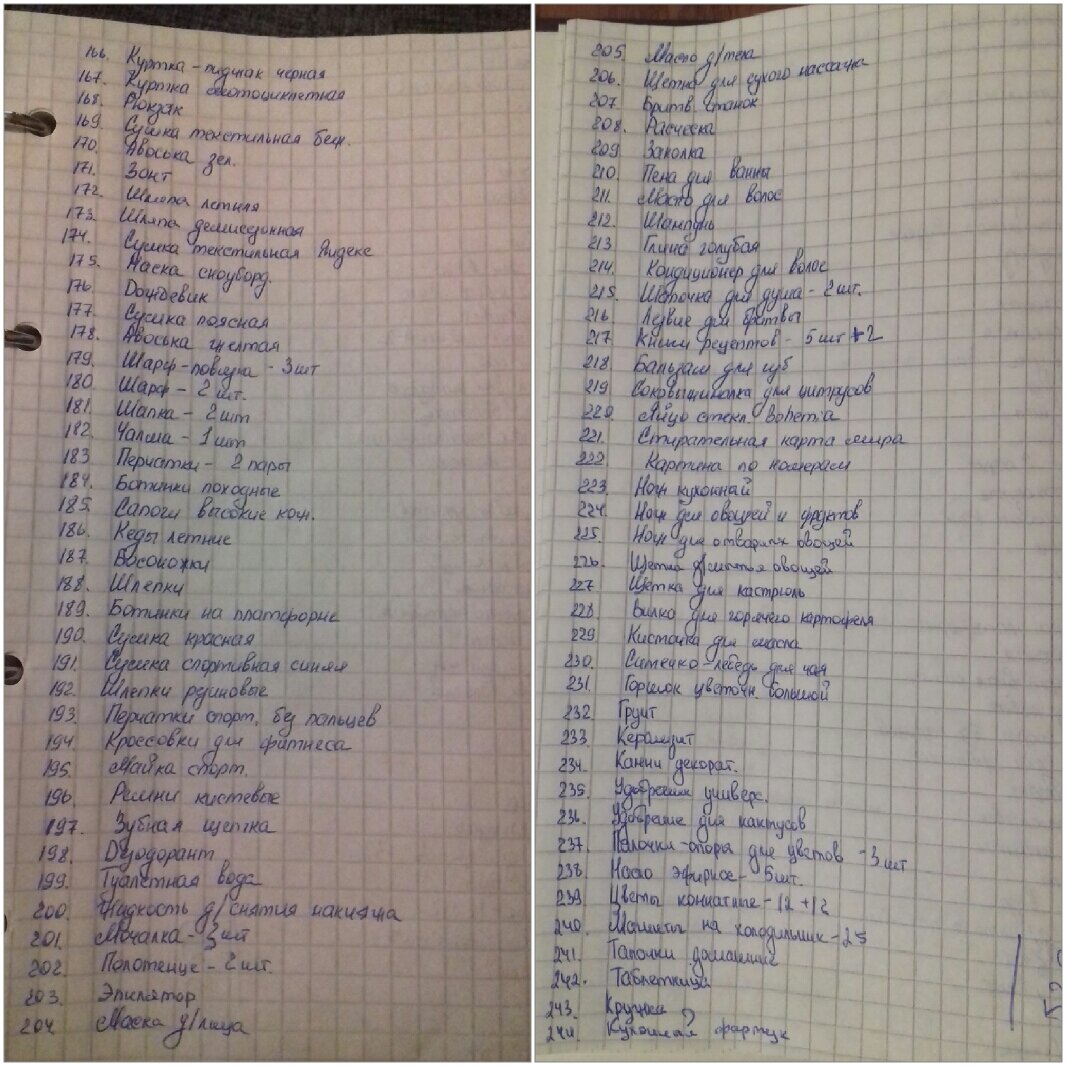 166. Куртка-пиджак черная
167. Куртка мотоциклетная
168. Рюкзак
169. Сумка текстильная беж.
170. Авоська зел.
171. Зонт
172. Шляпа летняя
173. Шляпа демисезонная
174. Сумка текстильная Яндекс
175. Маска сноуборд.
176. Дождевик
177. Сумка поясная
178. Авоська желтая
179. Шарф-повязка - 3 шт
180. Шарф - 2 шт.
181. Шапка - 2 шт
182. Чалма - 1 шт
183 Перчатки - 2 пары
184. Ботинки походные
185. Сапоги высокие кож.
186. Кеды летние
187. Босоножки
188. Шлепки
189. Ботинки на платформе
190. Сумка красная
191. Сумка спортивная синяя
192. Шлепки резиновые
193. Перчатки спорт. без пальцев
194. Кроссовки для фитнеса
195. Майка спорт.
196. Ремни кистевые
197. Зубная щетка
198. Дезодорант
199. Туалетная вода
200. Жидкость д/снятия макияжа
201. Мочалка - 3 шт
202. Полотенце - 2 шт.
203. Эпилятор
204 Маска д/лица
205. Масло д/тела
206. Щетка для сухого массажа
207. Бритв. станок
208. Расческа
209 Заколка
210. Пена для ванны
211. Масло для волос
212. Шампунь
213 Глина голубая
214. Кондиционер для волос
215. Шапочка для душа - 2 шт.
216 Лезвие для бритвы
217. Книги рецептов - 5 шт + 2
218. Бальзам для губ
219 Соковыжималка для цитрусов
220. Яйцо стекл. Bohemia
221. Стирательная карта мира
222 Картина по номерам
223. Нож кухонный
224. Нож для овощей и фруктов
225. Нож для отварных овощей
226. Щетка д/мытья овощей
227 Щетка для кастрюль
228 Вилка для горячего картофеля
229 Кисточка для масла
230. Ситечко-лебедь для чая
231. Горшок цветочн. большой
232 Грунт
233 Керамзит
234. Камни декорат.
235. Удобрение универс.
236. Удобрение для кактусов
237. Палочки-опоры для цветов - 3 шт
238. Масло эфирное - 5 шт.
239 Цветы комнатные - 12 + 12
240. Магниты на холодильник - 25
241. Тапочки домашние
242. Таблетница
243. Кружка
244. Кухонный фартук